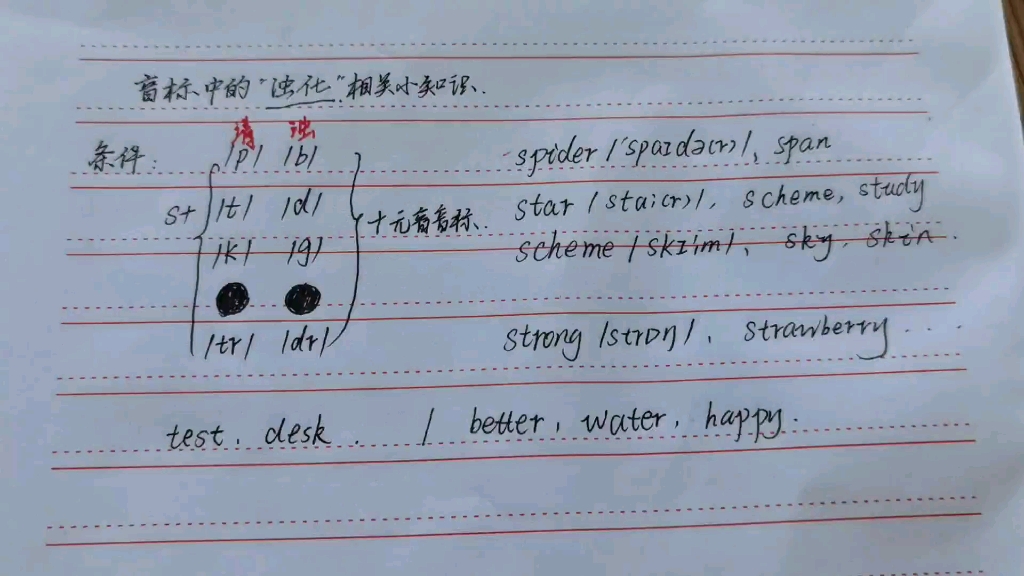 盲标中的"浊化"相关小知识.
清 浊
条件: /p/ /b/ spider /'spaɪdə(r)/、span
s+ /t/ /d/ +元音音标、 star /sta:(r)/, scheme, study
/k/ /g/ scheme /skɪ'm/、sky、skin.
/tr/ /dr/ strong /strɒŋ/、strawberry....
test、desk. / better, water, happy.